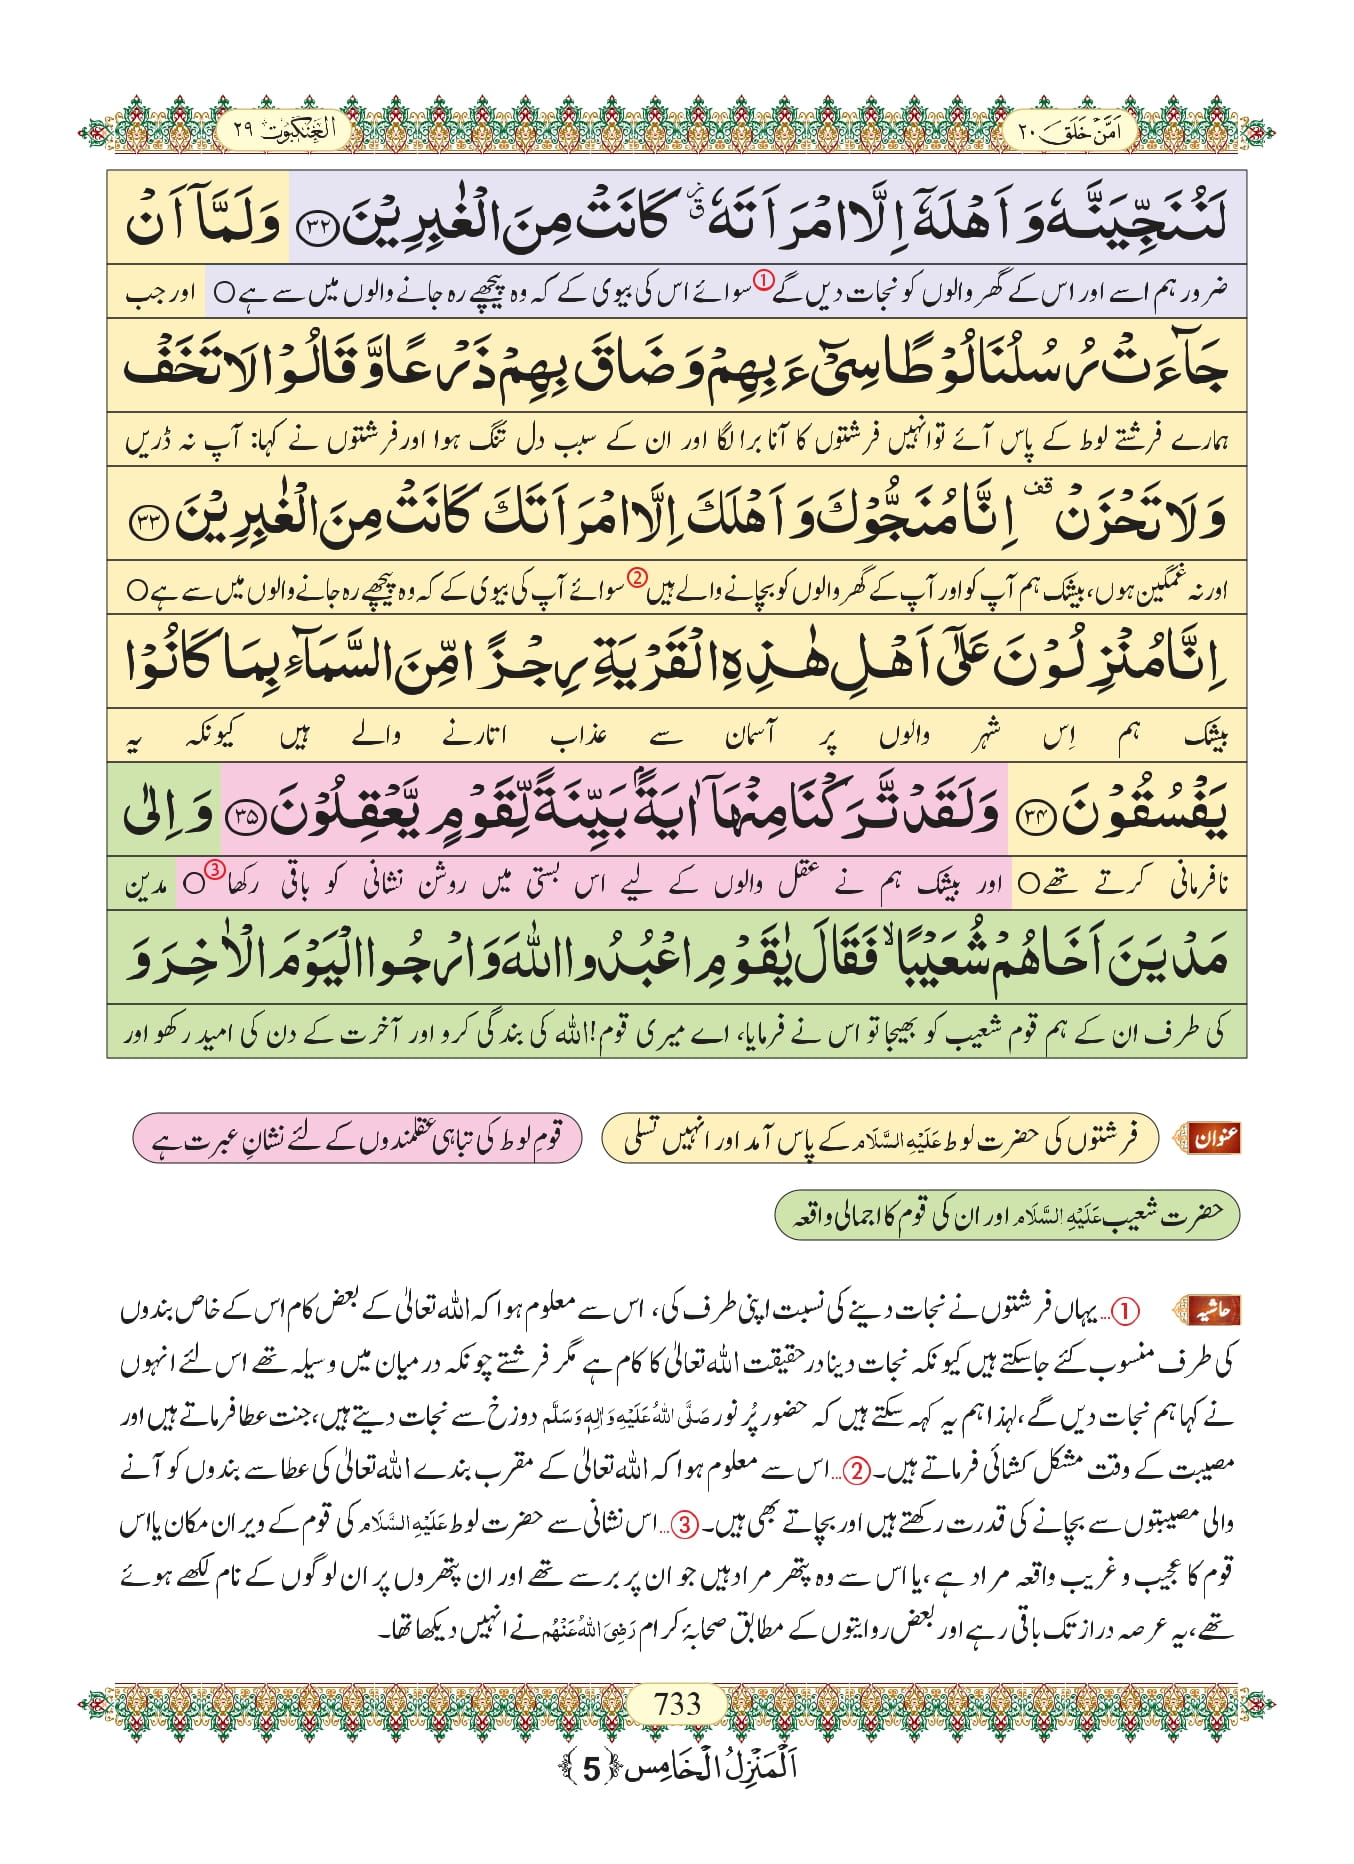 اَمَّنْ خَلَقَ ٢٠
الْعَنْكَبُوْت ٢٩
لَنُنَجِّيَنَّهٗ وَ اَهْلَهٗۤ اِلَّا امْرَاَتَهٗ ؗۗ كَانَتْ مِنَ الْغٰبِرِيْنَ ﴿۳۲﴾ وَ لَمَّاۤ اَنْ
ضرور ہم اسے اور اس کے گھر والوں کو نجات دیں گے① سوائے اس کی بیوی کے کہ وہ پیچھے رہ جانے والوں میں سے ہے○ اور جب
جَآءَتْ رُسُلُنَا لُوْطًا سِیْٓءَ بِهِمْ وَ ضَاقَ بِهِمْ ذَرْعًا وَّ قَالُوْا لَا تَخَفْ
ہمارے فرشتے لوط کے پاس آئے تو انہیں فرشتوں کا آنا برا لگا اور ان کے سبب دل تنگ ہوا اور فرشتوں نے کہا: آپ نہ ڈریں
وَ لَا تَحْزَنْ قف اِنَّا مُنَجُّوْكَ وَ اَهْلَكَ اِلَّا امْرَاَتَكَ كَانَتْ مِنَ الْغٰبِرِيْنَ ﴿۳۳﴾
اور نہ غمگین ہوں، بیشک ہم آپ کو اور آپ کے گھر والوں کو بچانے والے ہیں② سوائے آپ کی بیوی کے کہ وہ پیچھے رہ جانے والوں میں سے ہے○
اِنَّا مُنْزِلُوْنَ عَلٰۤى اَهْلِ هٰذِهِ الْقَرْيَةِ رِجْزًا مِّنَ السَّمَآءِ بِمَا كَانُوْا
بیشک ہم اِس شہر والوں پر آسمان سے عذاب اتارنے والے ہیں کیونکہ یہ
يَفْسُقُوْنَ ﴿۳۴﴾ وَ لَقَدْ تَّرَكْنَا مِنْهَاۤ اٰيَةًۢ بَيِّنَةً لِّقَوْمٍ يَّعْقِلُوْنَ ﴿۳۵﴾ وَ اِلٰى
نافرمانی کرتے تھے○ اور بیشک ہم نے عقل والوں کے لیے اس بستی میں روشن نشانی کو باقی رکھا③○ مدین
مَدْيَنَ اَخَاهُمْ شُعَيْبًا ۙ فَقَالَ يٰقَوْمِ اعْبُدُوا اللّٰهَ وَ ارْجُوا الْيَوْمَ الْاٰخِرَ وَ
کی طرف ان کے ہم قوم شعیب کو بھیجا تو اس نے فرمایا، اے میری قوم! اللہ کی بندگی کرو اور آخرت کے دن کی امید رکھو اور
عنوان فرشتوں کی حضرت لوط عَلَیْہِ السَّلَام کے پاس آمد اور انہیں تسلی قومِ لوط کی تباہی عقلمندوں کے لئے نشانِ عبرت ہے
حضرت شعیب عَلَیْہِ السَّلَام اور ان کی قوم کا اجمالی واقعہ
حاشیہ ①...یہاں فرشتوں نے نجات دینے کی نسبت اپنی طرف کی، اس سے معلوم ہوا کہ اللہ تعالیٰ کے بعض کام اس کے خاص بندوں
کی طرف منسوب کئے جاسکتے ہیں کیونکہ نجات دینا در حقیقت اللہ تعالیٰ کا کام ہے مگر فرشتے چونکہ درمیان میں وسیلہ تھے اس لئے انہوں
نے کہا ہم نجات دیں گے، لہذا ہم یہ کہہ سکتے ہیں کہ حضور پُر نور صَلَّی اللہُ عَلَیْہِ وَاٰلِہٖ وَسَلَّم دوزخ سے نجات دیتے ہیں، جنت عطا فرماتے ہیں اور
مصیبت کے وقت مشکل کشائی فرماتے ہیں۔ ②...اس سے معلوم ہوا کہ اللہ تعالیٰ کے مقرب بندے اللہ تعالیٰ کی عطا سے بندوں کو آنے
والی مصیبتوں سے بچانے کی قدرت رکھتے ہیں اور بچاتے بھی ہیں۔ ③...اس نشانی سے حضرت لوط عَلَیْہِ السَّلَام کی قوم کے ویران مکان یا اس
قوم کا عجیب و غریب واقعہ مراد ہے، یا اس سے وہ پتھر مراد ہیں جو ان پر برسے تھے اور ان پتھروں پر ان لوگوں کے نام لکھے ہوئے
تھے، یہ عرصہ دراز تک باقی رہے اور بعض روایتوں کے مطابق صحابۂ کرام رَضِیَ اللہُ عَنْہُم نے انہیں دیکھا تھا۔
733
اَلْمَنْزِلُ الْخَامِس ﴿5﴾